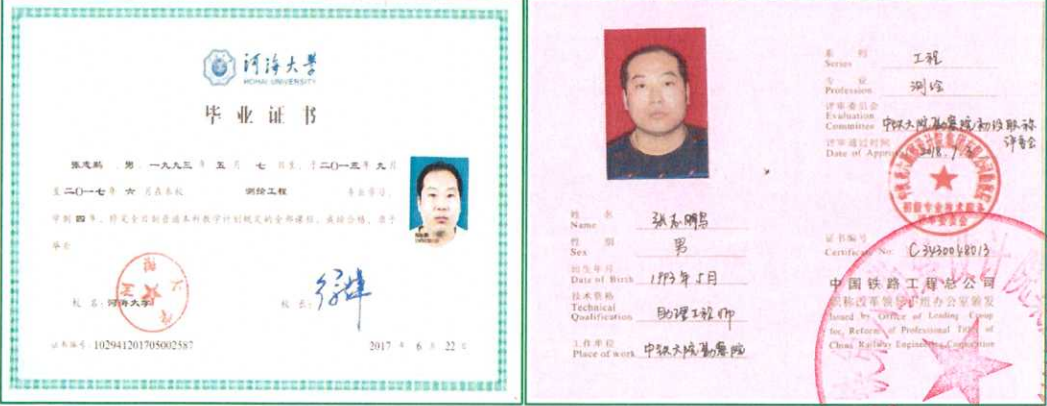 河海大学
HOHAI UNIVERSITY
毕业证书
张志鹏 男 一九九三年五月七日生,于二〇一三年九月
至二〇一七年六月在本校 测绘工程 专业学习,
学制四年,修完全日制普通本科教学计划规定的全部课程,成绩合格,准予
毕业
校名:河海大学 校长:
证书编号:102941201705002587 2017年6月22日
系列 工程
Series
专业 测绘
Profession
评审委员会
Evaluation
Committee 中铁大院勘察院初级职称
评委会
评审通过时间
Date of Approval
姓名 张志鹏
Name
性别 男
Sex
出生年月
Date of Birth 1993年5月
技术资格
Technical
Qualification 助理工程师
工作单位
Place of work 中铁大院勘察院
证书编号
Certificate No: C3430048013
中国铁路工程总公司
职称改革领导小组办公室颁发
Issued by Office of Leading Group
for Reform of Professional Titles of
China Railway Engineering Corporation